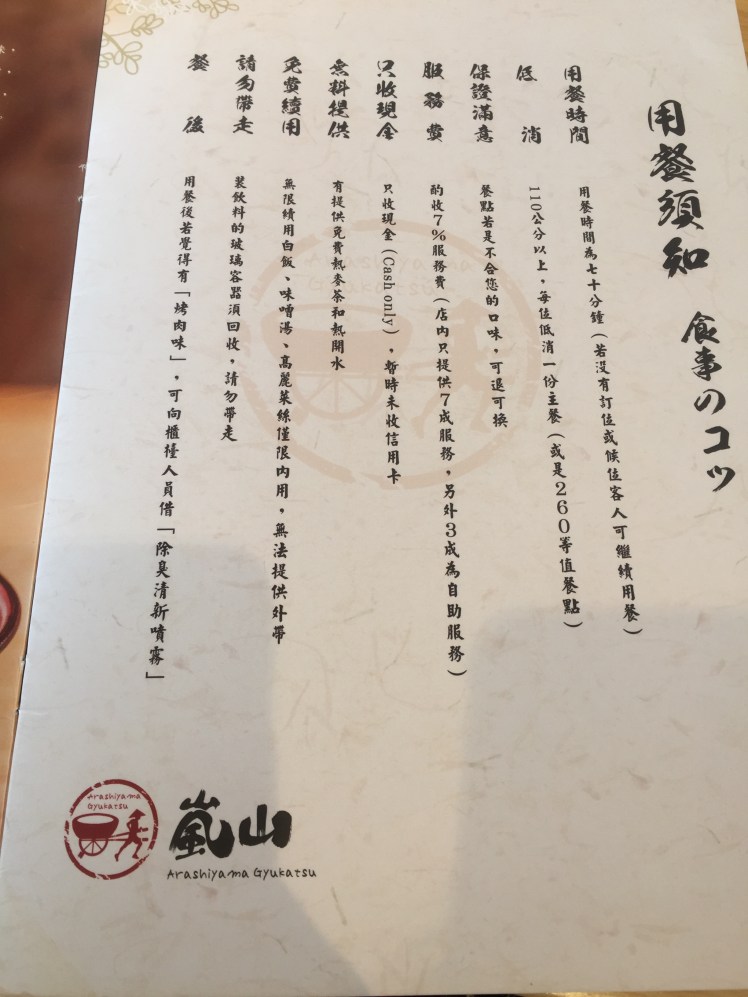 用餐須知 食事のコツ
用餐時間 用餐時間為七十分鐘(若沒有訂位或候位客人可繼續用餐)
低消 110公分以上,每位低消一份主餐(或是260等值餐點)
保證滿意 餐點若是不合您的口味,可退可換
服務費 酌收7%服務費(店內只提供7成服務,另外3成為自助服務)
只收現金 只收現金(Cash only),暫時未收信用卡
無料提供 有提供免費熱麥茶和熱開水
免費續用 無限續用白飯、味噌湯、高麗菜絲僅限內用,無法提供外帶
請勿帶走 裝飲料的玻璃容器須回收,請勿帶走
餐後 用餐後若覺得有「烤肉味」,可向櫃檯人員借「除臭清新噴霧」
Arashiyama
Gyukatsu
嵐山
Arashiyama Gyukatsu